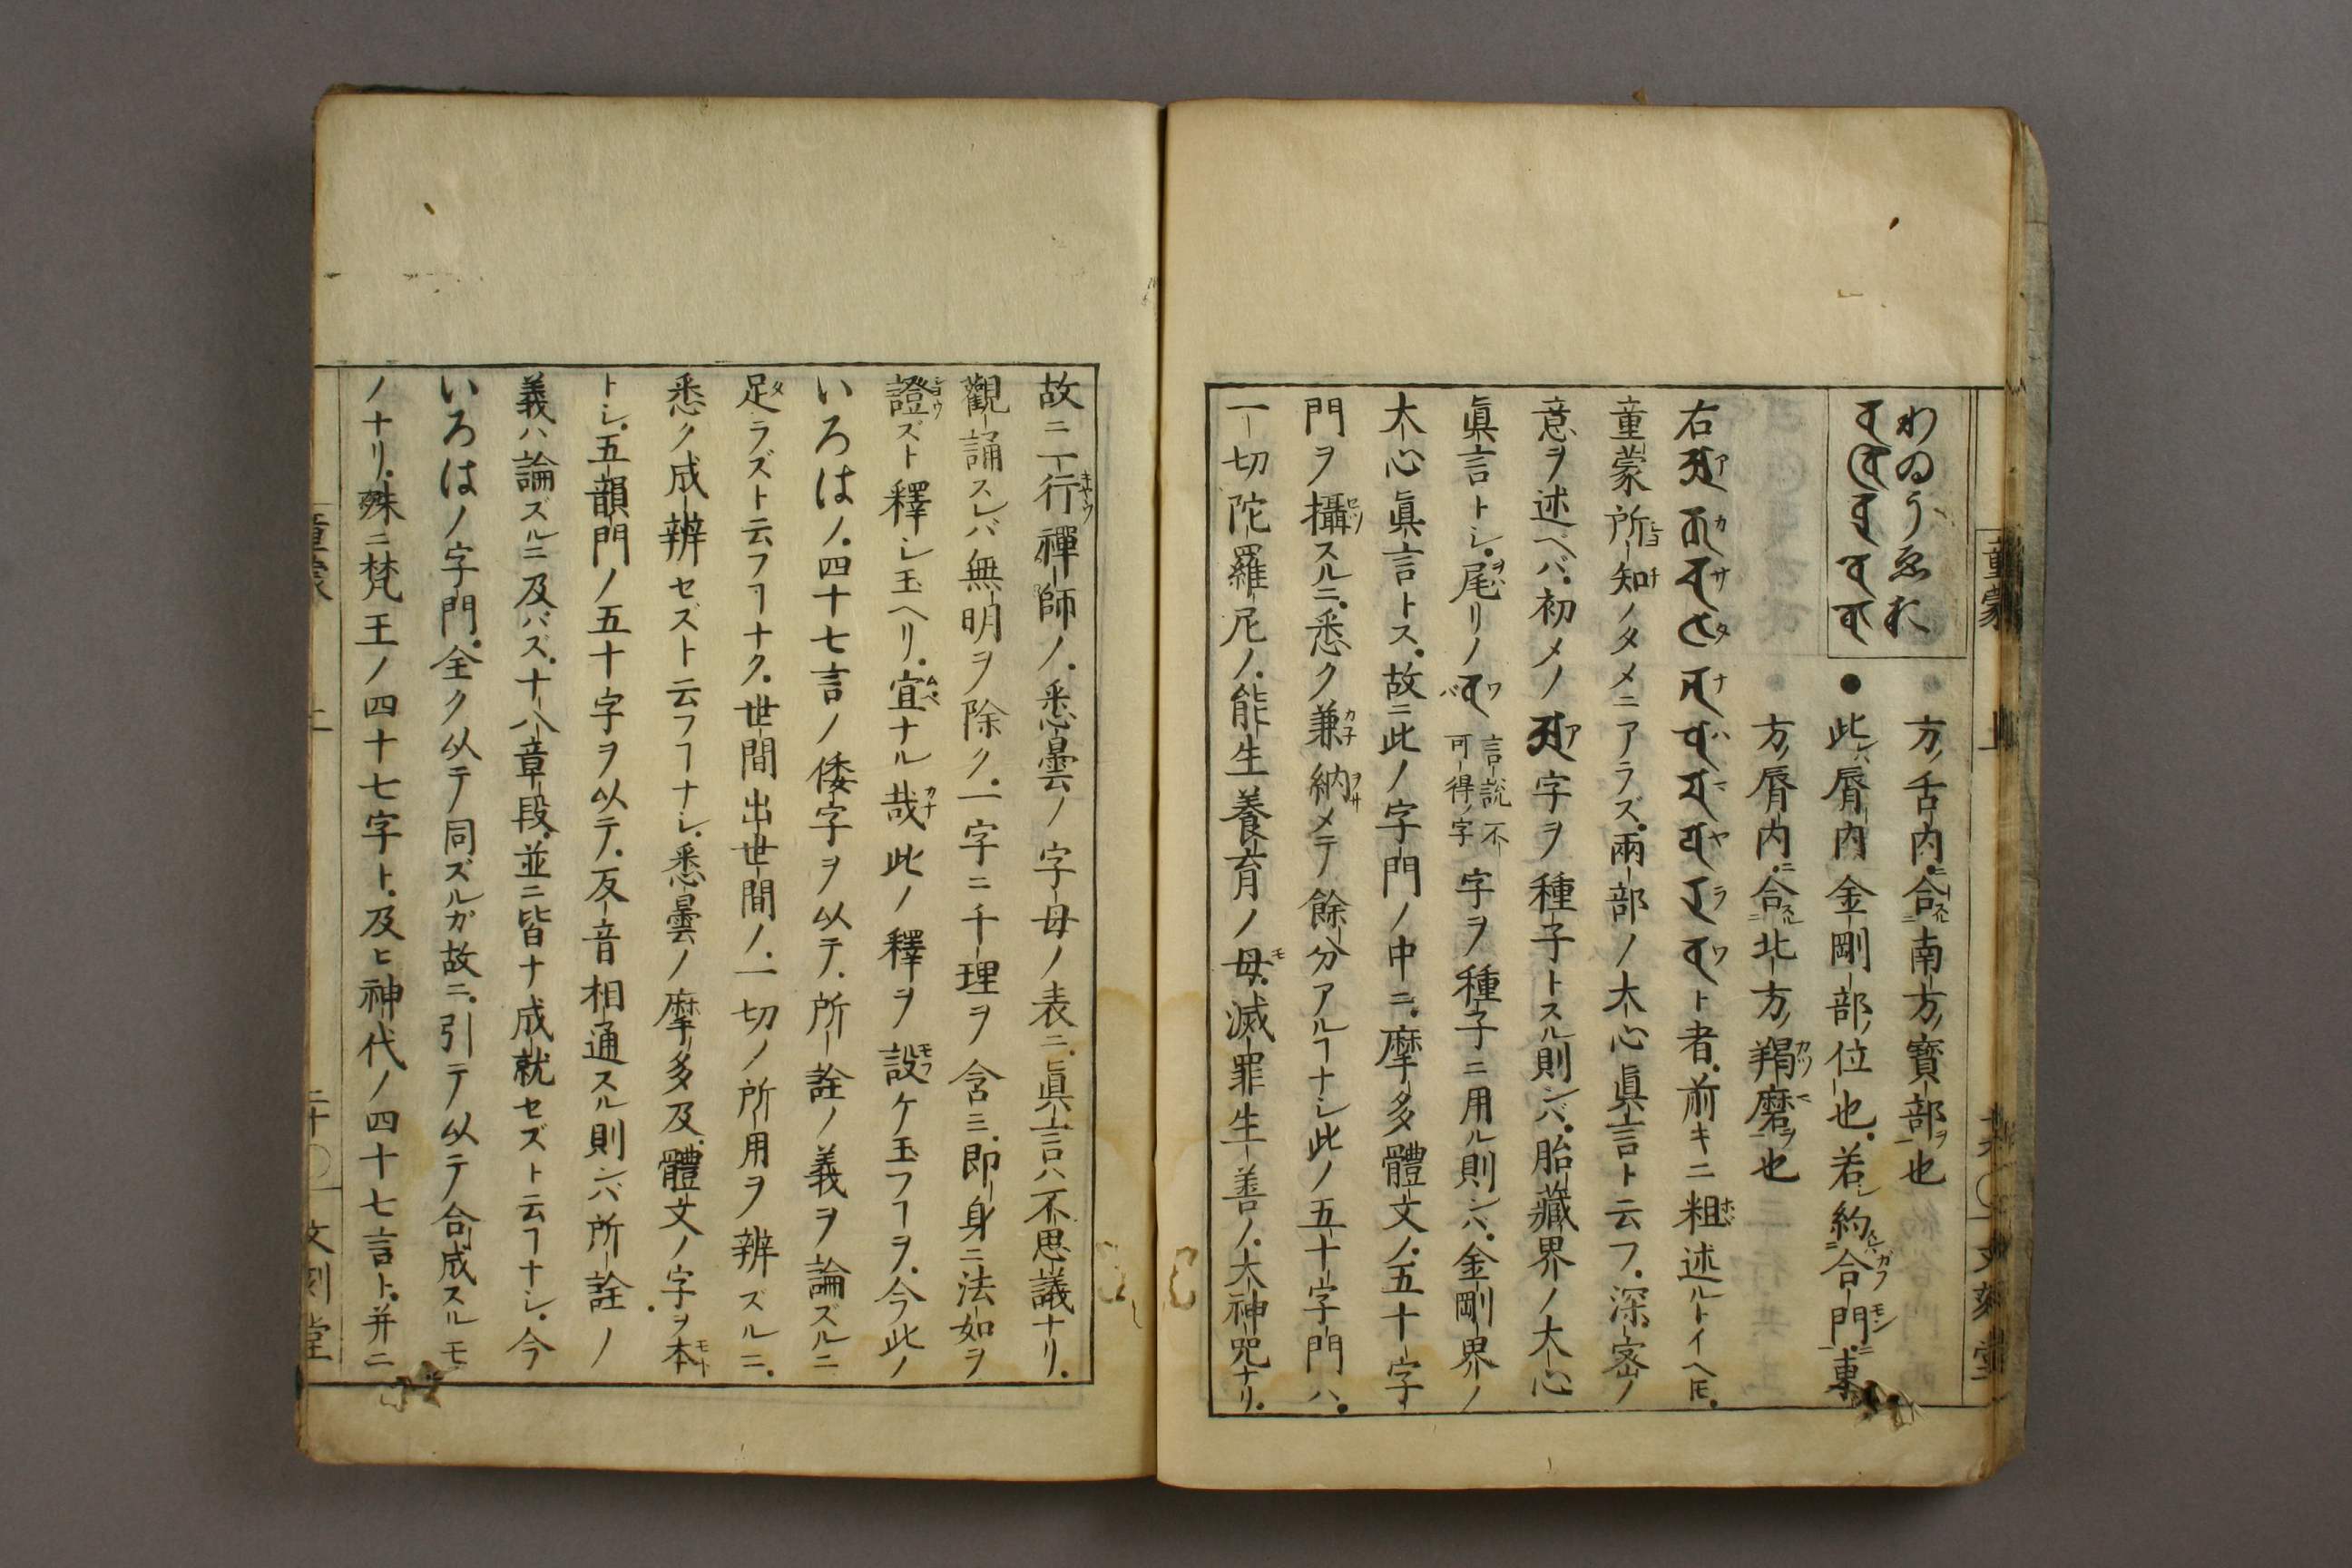 童蒙 上
わゐうゑお
方ノ舌内ニ合スル南方ノ寶部ヲ也
● 此レハ脣内金剛部ノ位也若シ約スレハ合門ニ東
方ノ脣内ニ合スル北方ノ羯磨ヲ也
右𑖀𑖎𑖭𑖝𑖡𑖮𑖦𑖧𑖨𑖪ト者前キニ粗述ルトイヘ𪜈
童蒙所知ノタメニアラズ兩部ノ大心眞言ト云フ深密ノ
意ヲ述ベバ初メノ𑖀字ヲ種子トスル則ンバ胎藏界ノ大心
眞言トシ尾リノ𑖪言説不可得ノ字字ヲ種子ニ用ル則ンバ金剛界ノ
大心眞言トス故ニ此ノ字門ノ中ニ摩多體文ノ五十字
門ヲ攝スルニ悉ク兼納メテ餘分アルヿナシ此ノ五十字門ハ
一切陀羅尼ノ能生養育ノ母滅罪生善ノ大神咒ナリ
故ニ一行禪師ノ悉曇ノ字母ノ表ニ眞言ハ不思議ナリ
觀誦スレバ無明ヲ除ク一字ニ千理ヲ含ミ即身ニ法如ヲ
證ズト釋シ玉ヘリ宜ナル哉此ノ釋ヲ設ケ玉フヿヲ今此ノ
いろはノ四十七言ノ倭字ヲ以テ所詮ノ義ヲ論ズルニ
足ラズト云フヿナク世間出世間ノ一切ノ所用ヲ辨ズルニ
悉ク成辨セズト云フヿナシ悉曇ノ摩多及體文ノ字ヲ本
トシ五韻門ノ五十字ヲ以テ反音相通スル則ンバ所詮ノ
義ハ論ズルニ及バズ十八章段並ニ皆ナ成就セズト云ヿナシ今
いろはノ字門全ク以テ同ズルガ故ニ引テ以テ合成スルモ
ノナリ殊ニ梵王ノ四十七字ト及ヒ神代ノ四十七言ト并ニ
童蒙 上 二十 文刻堂